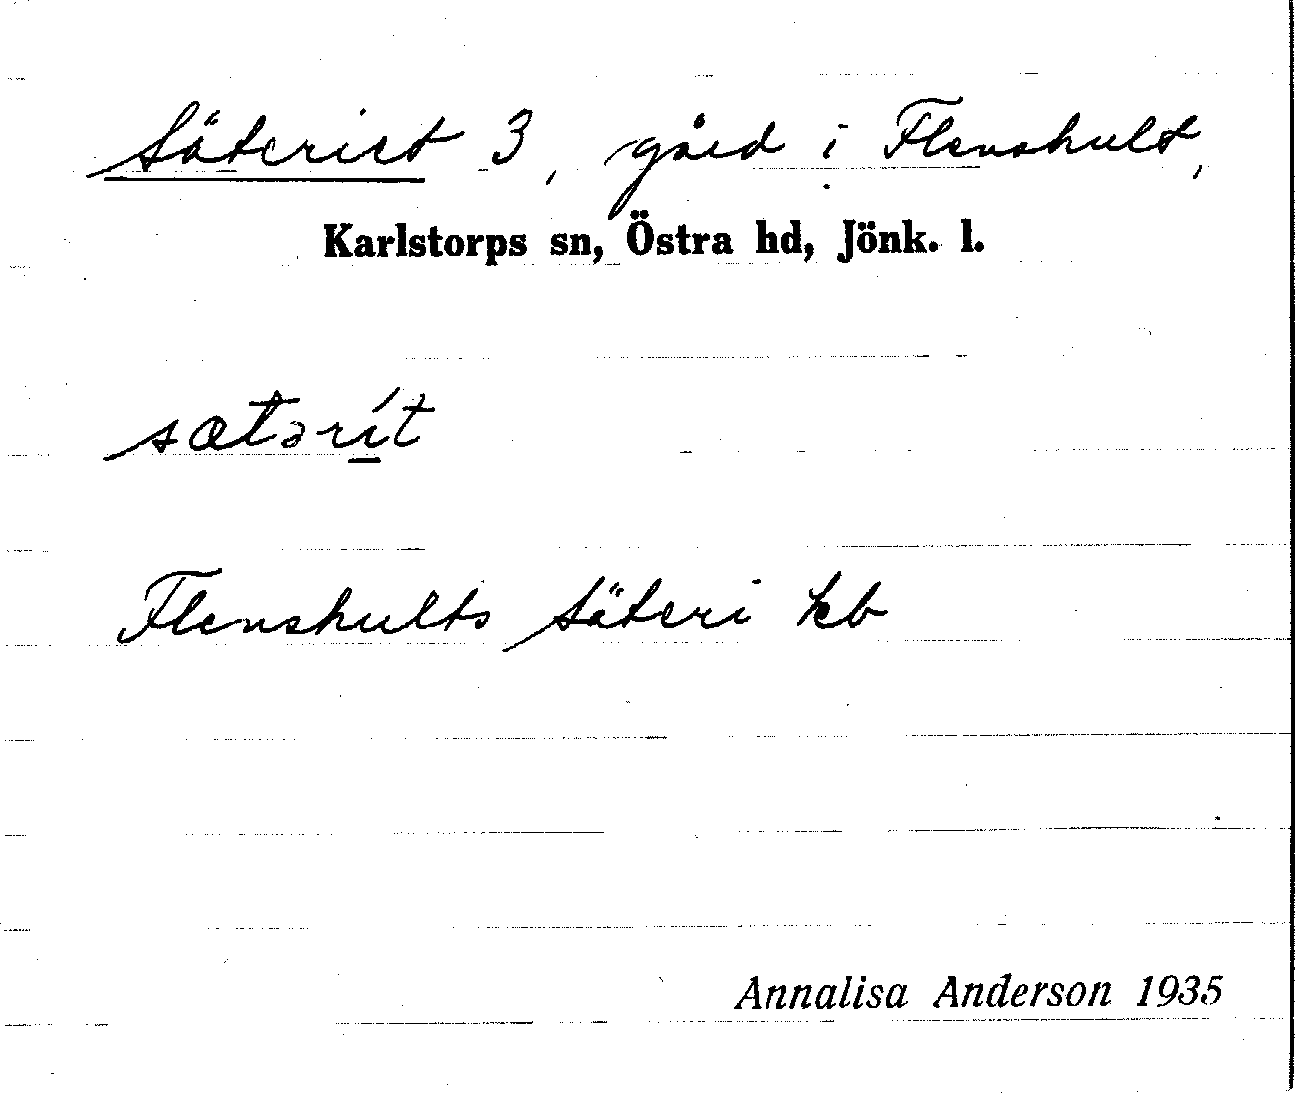 Säteriet 3, gård i Flenshult,
Karlstorps sn, Östra hd, Jönk. l.
sætərít
Flenshults Säteri kb
Annalisa Anderson 1935